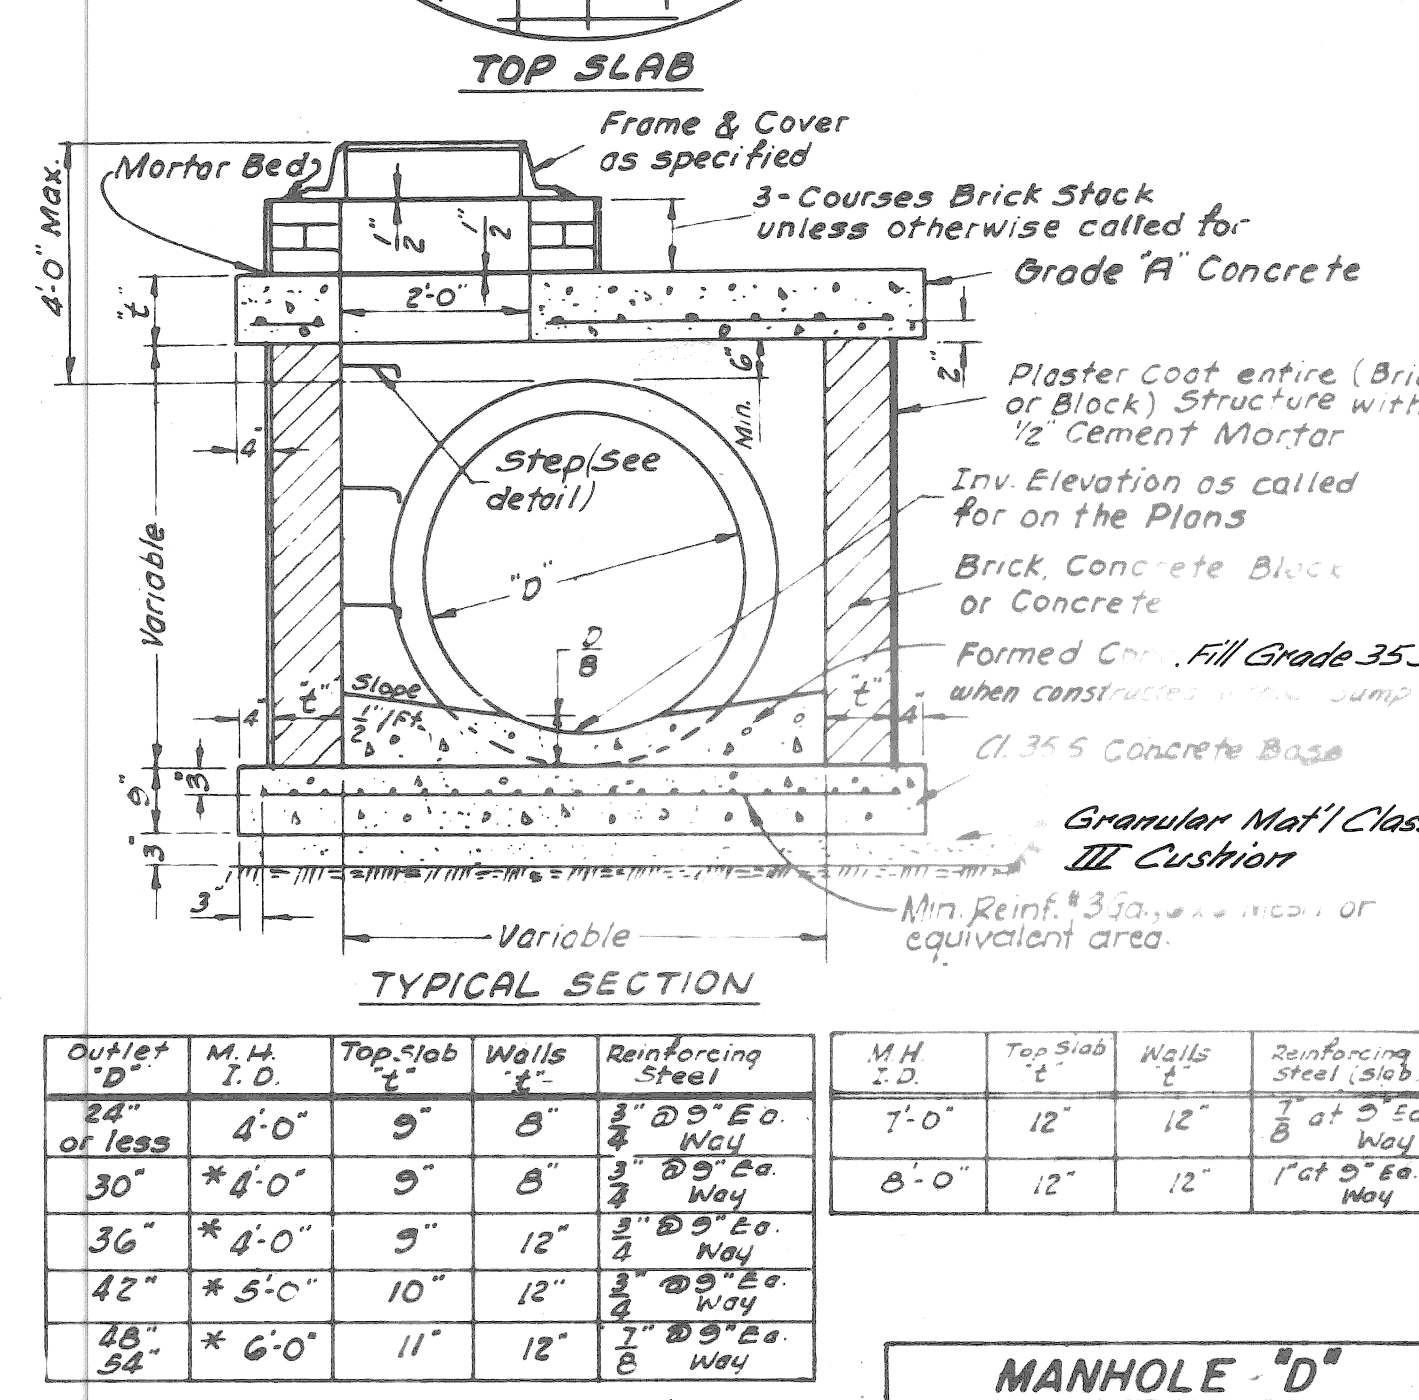 TOP SLAB
Frame & Cover
as specified
Mortar Bed
3-Courses Brick Stack
unless otherwise called for
4'-0" Max.
1/2"
1/2"
Grade "A" Concrete
"t"
2'-0"
6"
Min.
2"
Plaster Coat entire (Bric
or Block) Structure with
1/2" Cement Mortar
4"
Step (See
detail)
Inv. Elevation as called
for on the Plans
Variable
"D"
Brick, Concrete Block
or Concrete
D/8
Formed . Fill Grade 35S
when constructed sump
Slope
1/2"/Ft.
4"
"t"
"t"
4"
Cl. 35 S Concrete Base
9"
3"
3"
Granular Mat'l Class
III Cushion
3"
Min. Reinf. #3Ga., Mesh or
equivalent area.
Variable
TYPICAL SECTION
Outlet "D" M.H. I.D. Top Slab "t" Walls "t" Reinforcing Steel
24" or less 4'-0" 9" 8" 3/4" @ 9" Ea. Way
30" *4'-0" 9" 8" 3/4" @ 9" Ea. Way
36" *4'-0" 9" 12" 3/4" @ 9" Ea. Way
42" *5'-0" 10" 12" 3/4" @ 9" Ea. Way
48" 54" *6'-0" 11" 12" 7/8" @ 9" Ea. Way
M.H. I.D. Top Slab "t" Walls "t" Reinforcing Steel (Slab
7'-0" 12" 12" 7/8" at 9" Ea. Way
8'-0" 12" 12" 1" at 9" Ea. Way
MANHOLE - "D"